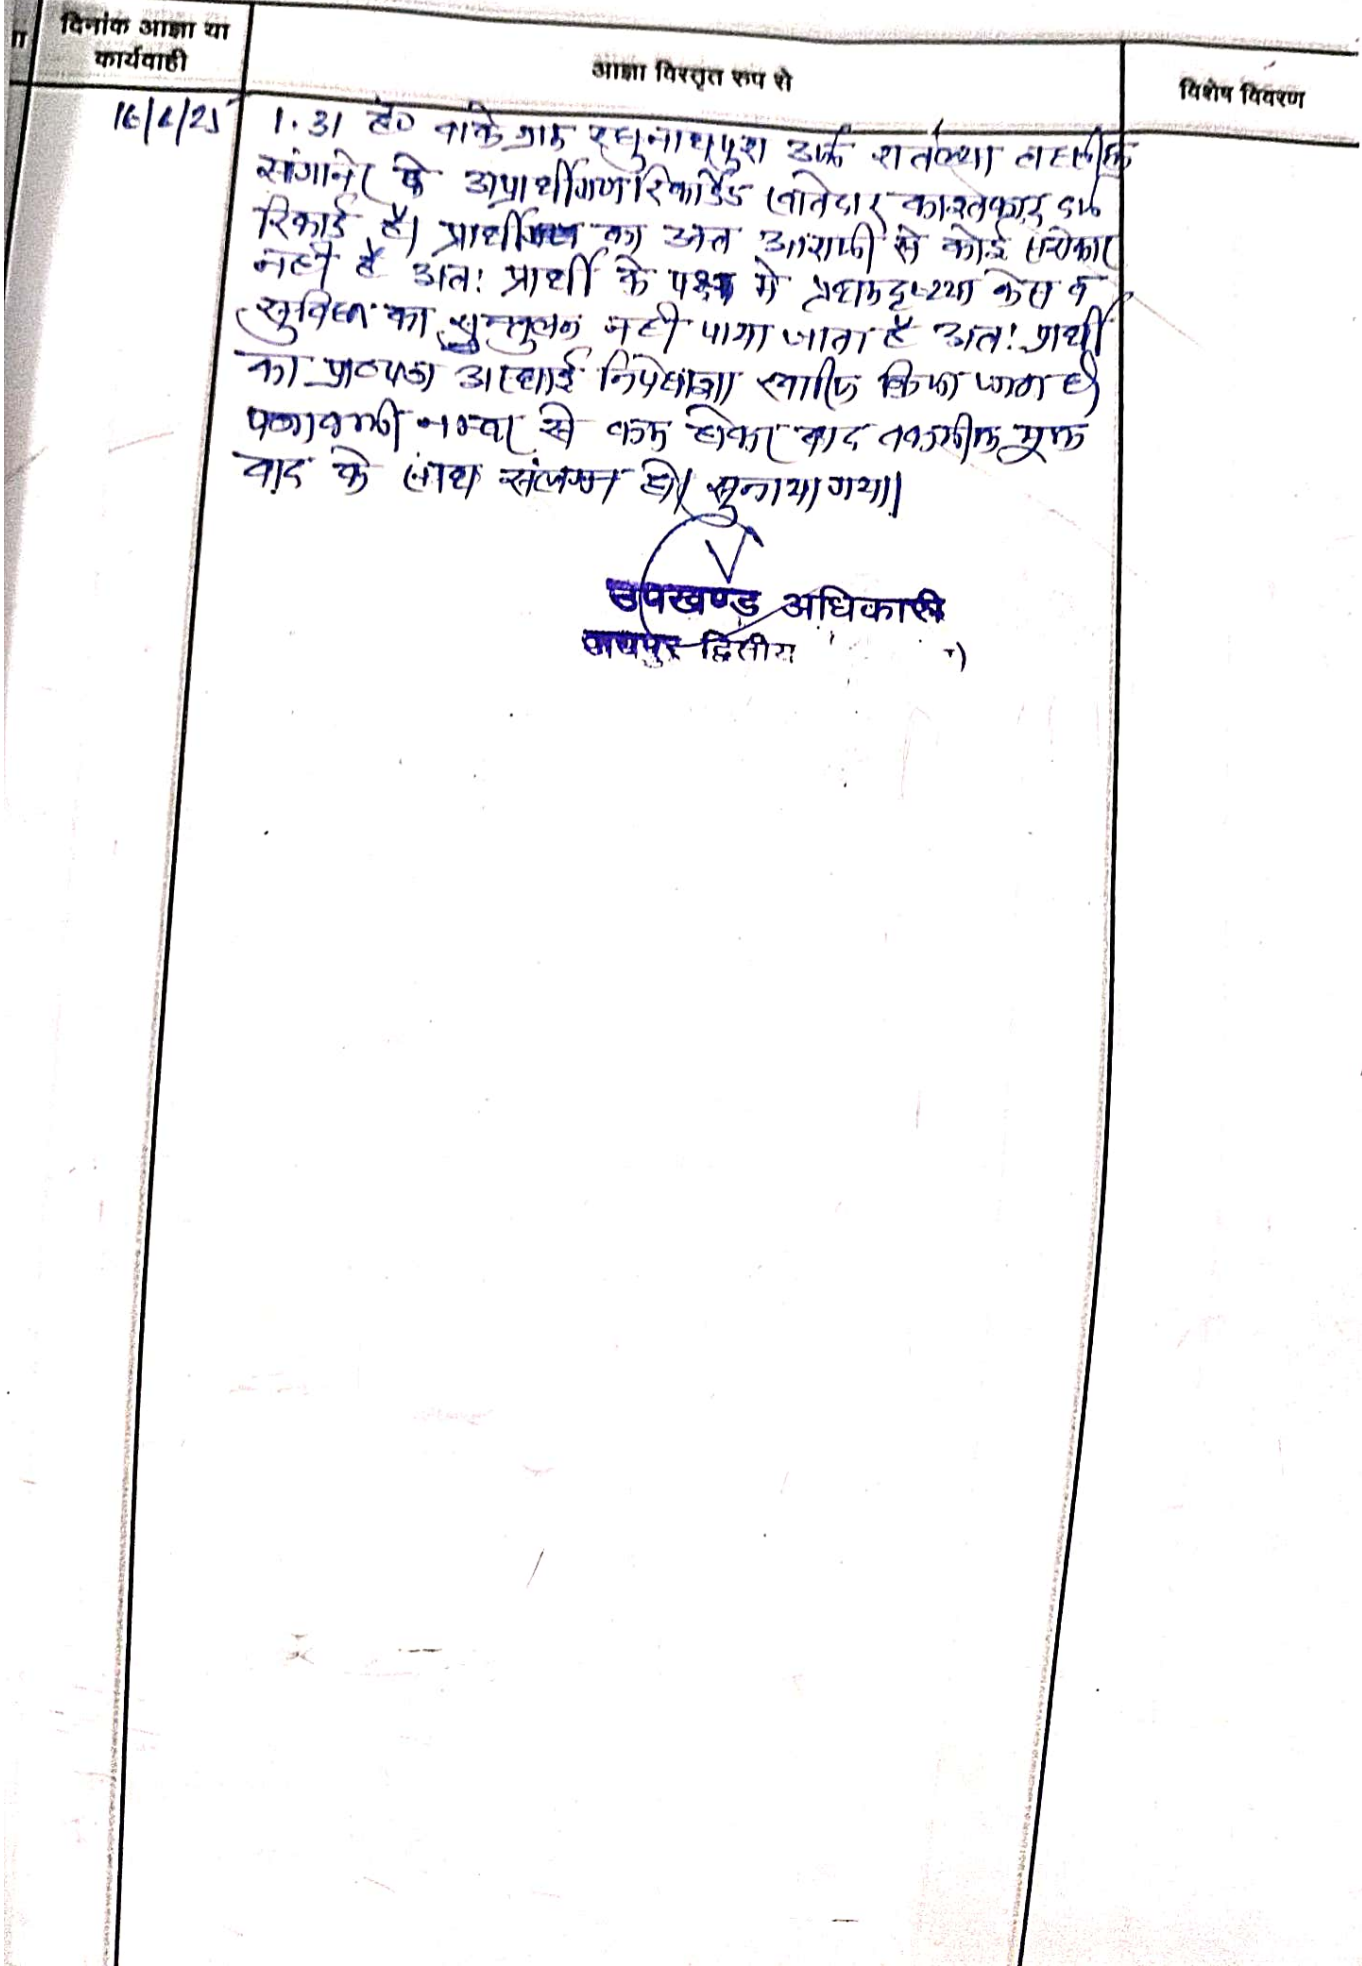 दिनांक आज्ञा या
कार्यवाही
आज्ञा विस्तृत रूप से
विशेष विवरण
16/6/25
1.31 है० वाके ग्राम रघुनाथपुरा उर्फ तहसील
सांगानेर के अप्रार्थीगण रिकार्डेड खातेदार काश्तकार दर्ज
रिकार्ड है। प्रार्थी का उक्त आराजी से कोई सरोकार
नहीं है अत: प्रार्थी के पक्ष में प्रथमदृष्टया केस व
सुविधा का सन्तुलन नही पाया जाता है अत: प्रार्थी
का प्रा०पत्र अस्थाई निषेधाज्ञा खारिज किया जाता है।
पत्रावली नम्बर से कम होकर बाद तकमील मूल
वाद के साथ संलग्न हो। सुनाया गया।
उपखण्ड अधिकारी
जयपुर द्वितीय